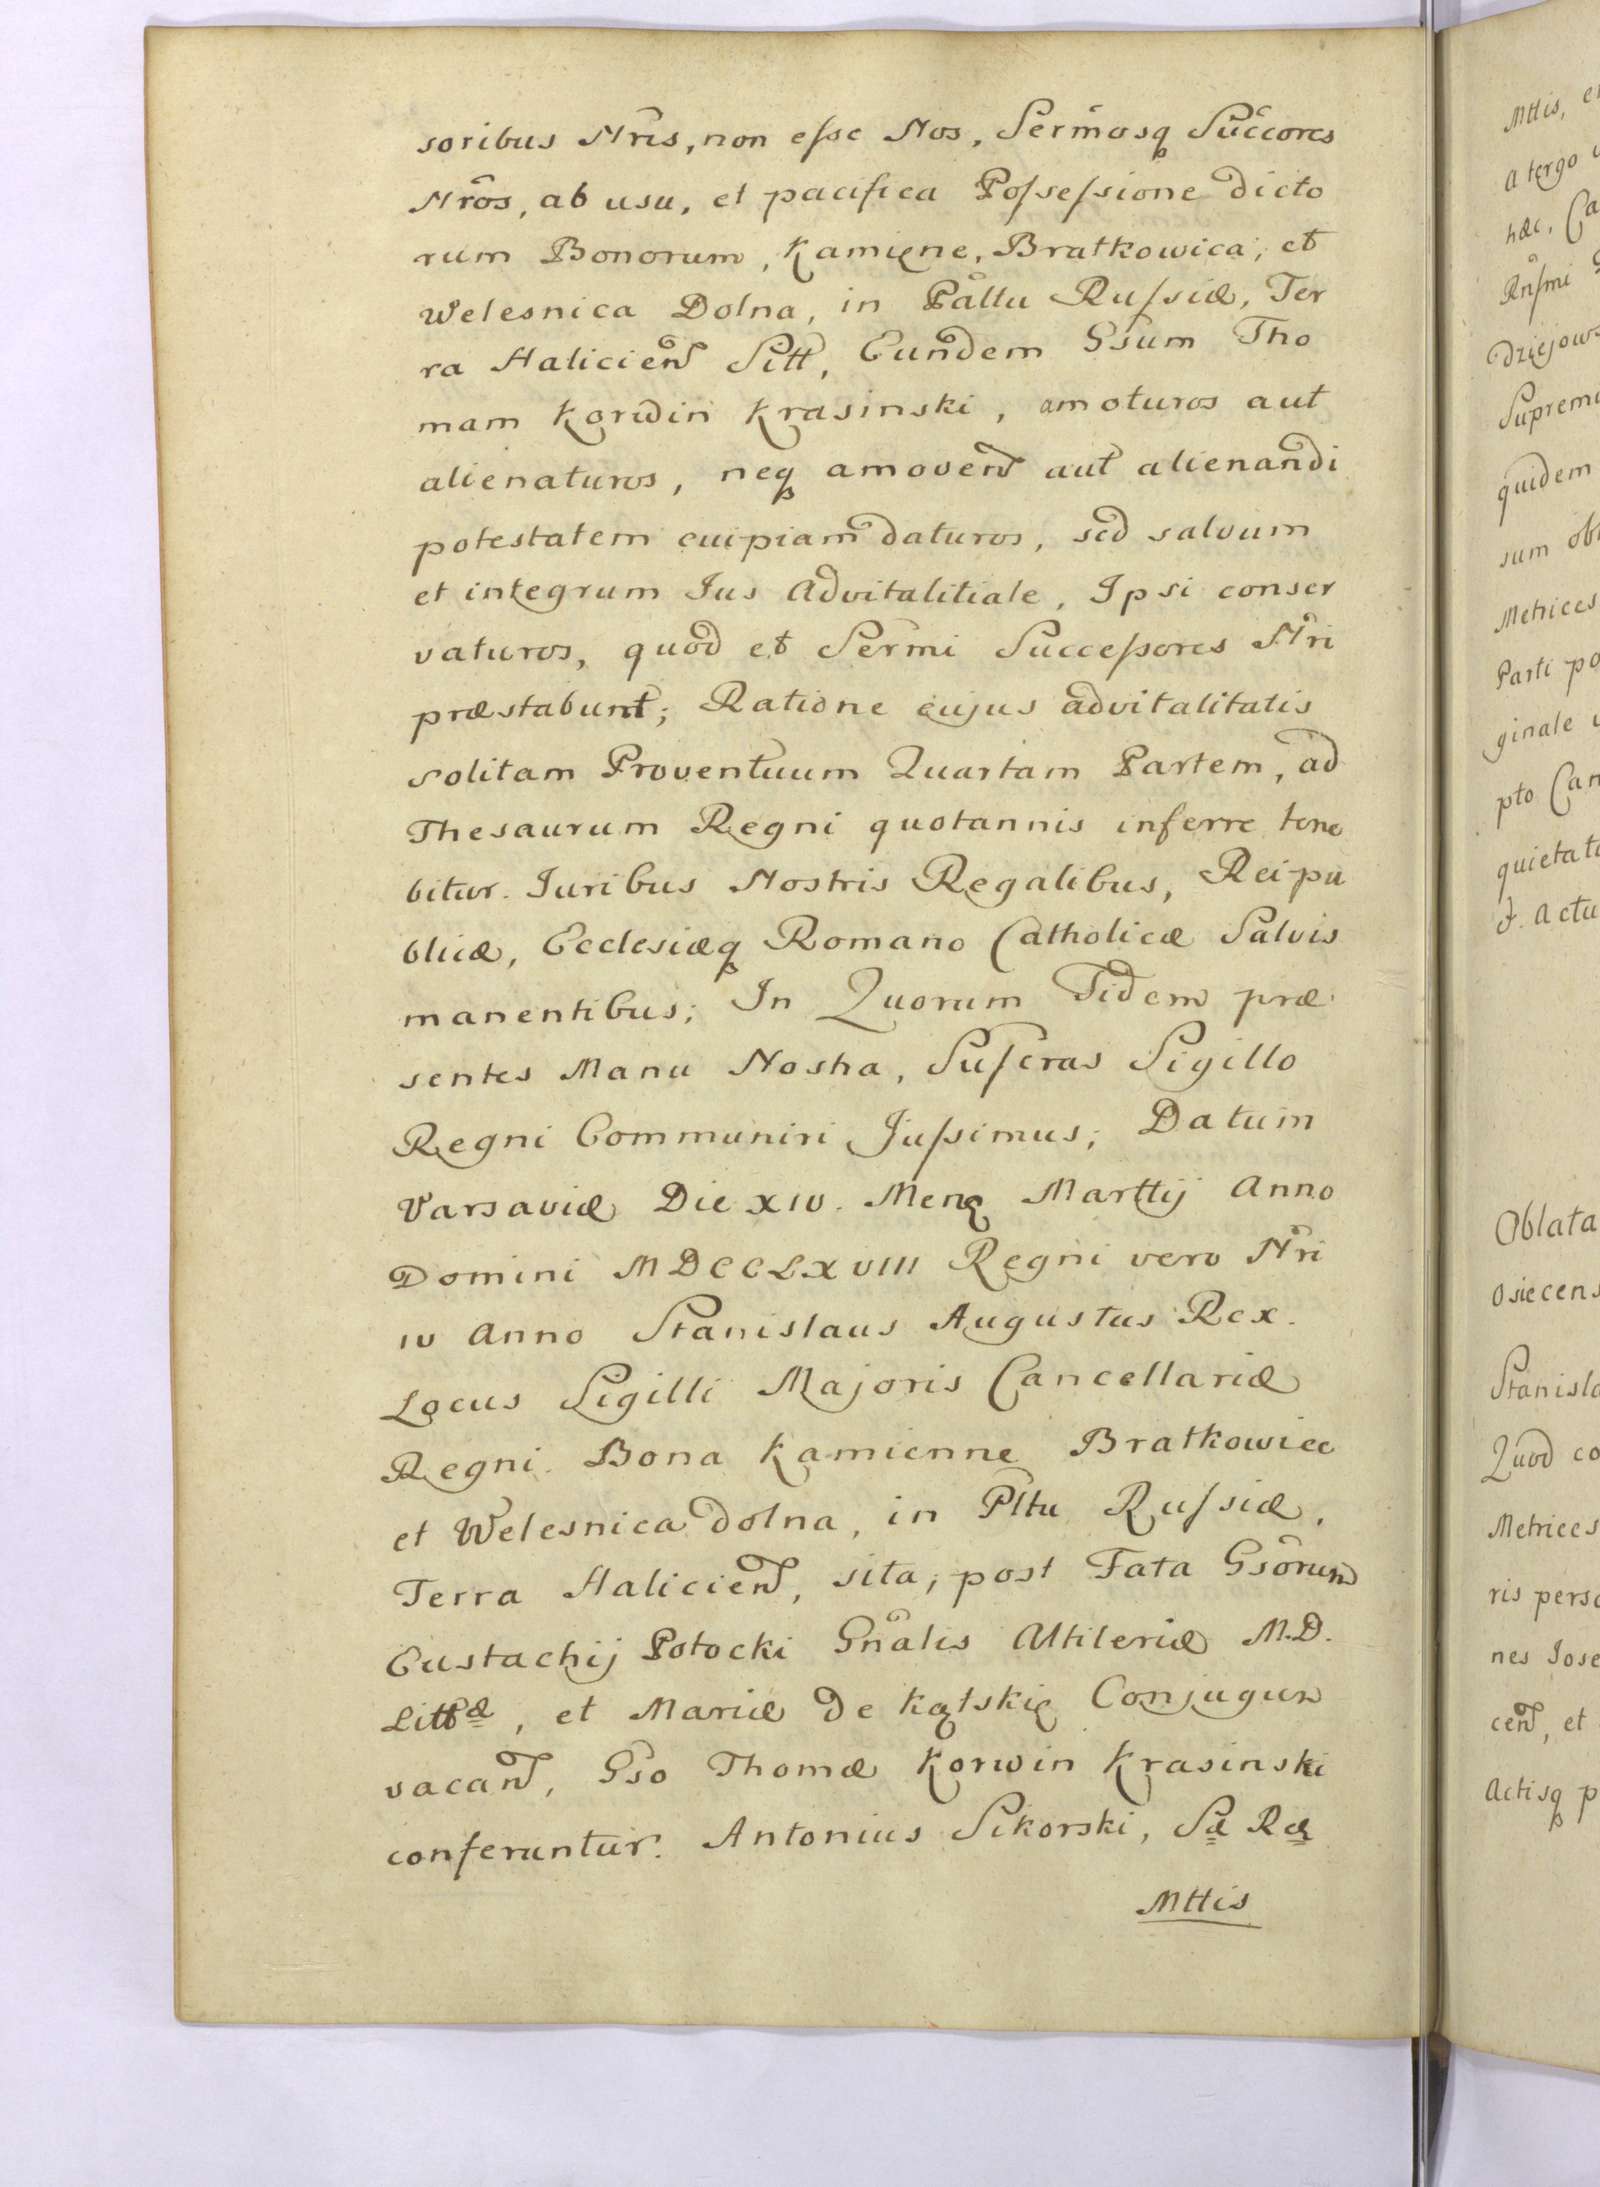 soribus Nris, non eſse Nos, Sermosq Succores
Nros, ab usu, et pacifica Poſseſsione dicto
rum Bonorum, Kamięne, Bratkowica, et
Welesnica Dolna, in Pałtu Ruſsiæ, Ter
ra Halicień Sitt, Eundem Gsum Tho
mam Korwin Krasinski, amoturos aut
alienaturos, neq amoveń aut alienandi
potestatem cuipiam daturos, sed salvum
et integrum Jus Advitalitiale, Ipsi conser
vaturos, quod et Sermi Succeſsores Nri
præstabunt; Ratione cujus advitalitatis
solitam Proventuum Quartam Partem, ad
Thesaurum Regni quotannis inferre tene
bitur. Juribus Nostris Regalibus, Reipu
blicæ, Ecclesiæq Romano Catholicæ Salvis
manentibus; In Quorum Fidem præ
sentes Manu Nostra, Suſcras Sigillo
Regni Communiri Juſsimus; Datum
Varsaviæ Die XIV. Menę Martij Anno
Domini MDCCLXVIII Regni vero Nri
IV Anno Stanislaus Augustus Rex.
Locus Sigilli Majoris Cancellariæ
Regni. Bona Kamienne Bratkowiec
et Welesnica dolna, in Płtu Ruſsiæ,
Terra Halicień, sita, post Fata Gsorum
Eustachij Potocki Gnalis Attileriæ M.D.
Littæ, et Mariæ de Kątskię Conjugum
vacań, Gso Thomæ Korwin Krasinski
conferuntur. Antonius Sikorski, Sæ Ræ
Mttis
Mttis,
a tergo
hæc, Ca
Rnſmi
dziejows
Supremi
quidem
sum ob
Metrices
Parti po
ginale
pto Can
quietat
d. actu
Oblata
Osiecens
Stanisla
Quod co
Metrices
ris perso
nes Jose
ceń, et
Actisq p